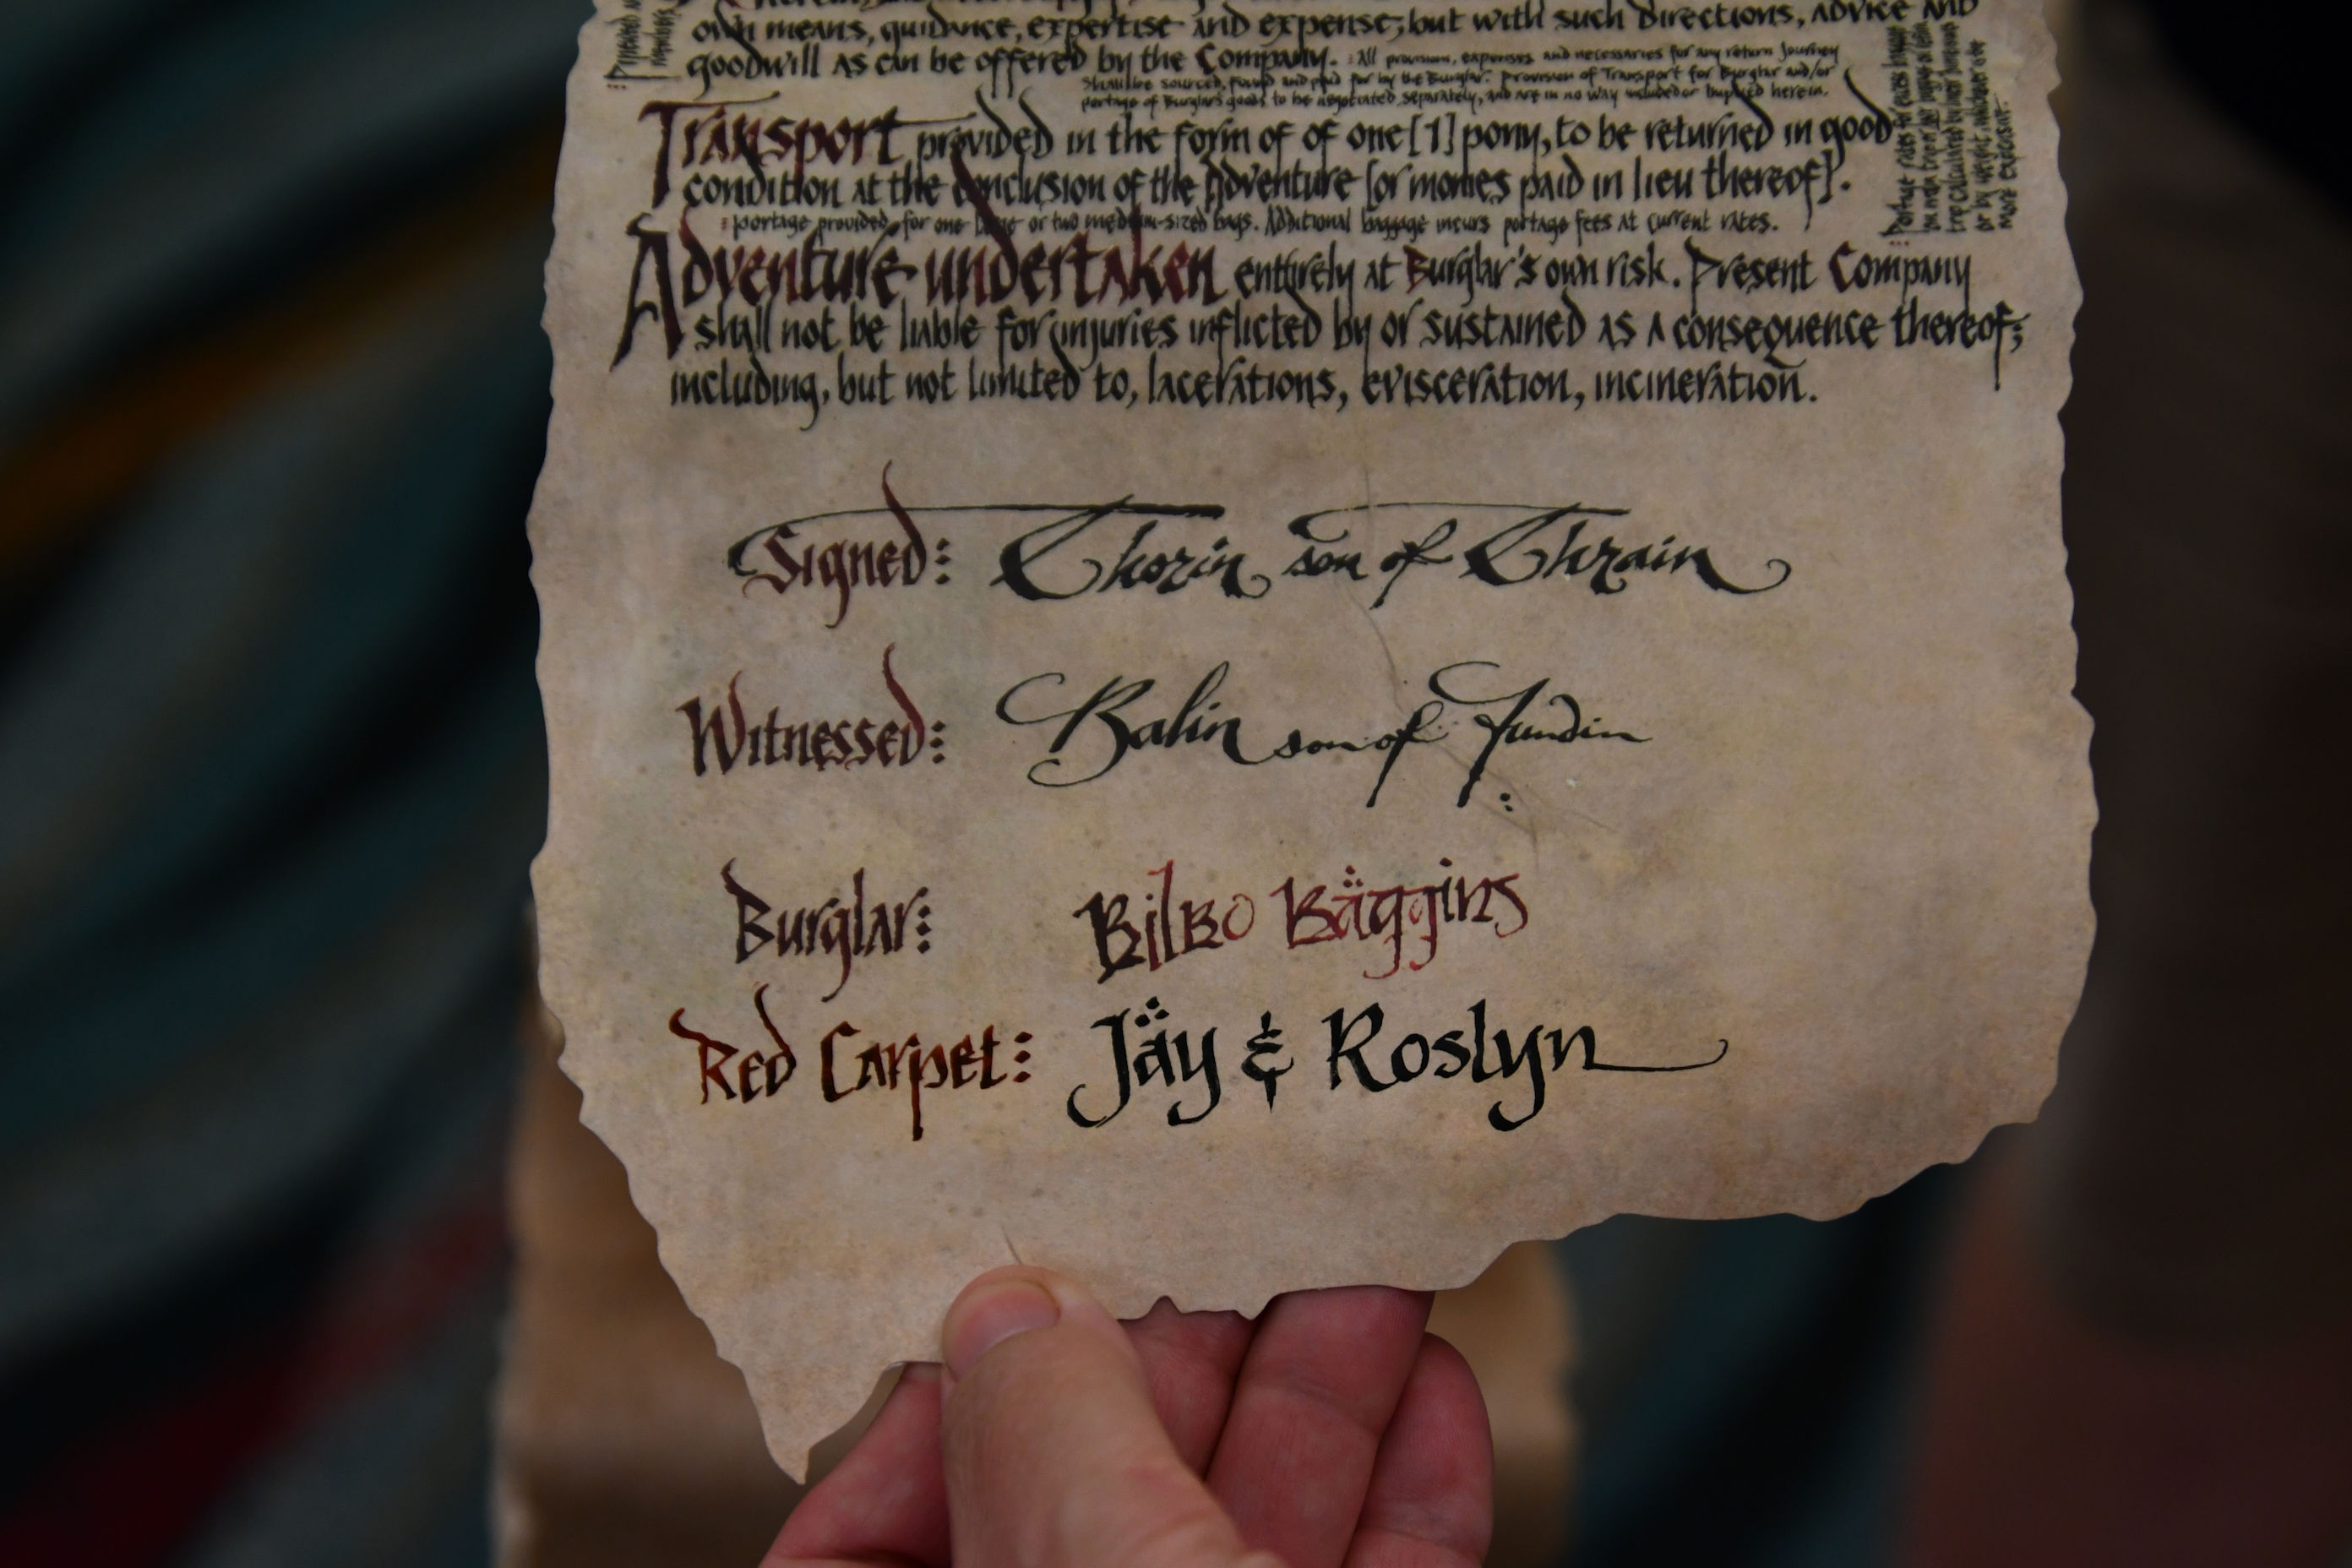 own means, guidance, expertise and expense; but with such directions, advice and
goodwill as can be offered by the Company. All provision, expenses and necessaries for any return Journey
shall be sourced, found and paid for by the Burglar. Provision of Transport for Burglar and/or
portage of Burglar's goods to be negotiated separately, and are in no way included or implied herein.
Transport provided in the form of of one [1] pony, to be returned in good
condition at the conclusion of the Adventure [or monies paid in lieu thereof].
portage provided for one large or two medium-sized bags. Additional baggage incurs portage fees at current rates.
Adventure undertaken entirely at Burglar's own risk. Present Company
shall not be liable for injuries inflicted by or sustained as a consequence thereof;
including, but not limited to, lacerations, evisceration, incineration.
more expensive.
Signed: Thorin son of Thrain
Witnessed: Balin son of Fundin
Burglar: Bilbo Baggins
Red Carpet: Jay & Roslyn